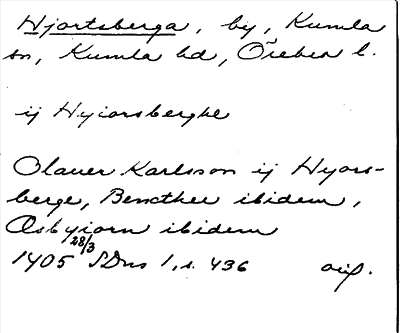 Hjortsberga, by, Kumla
sn, Kumla hd, Örebro l.
ij Hyiorsberghe
Olauer Karlsson ij Hyors-
berge, Bencther ibidem,
Æsbyiorn ibidem
28/3
1405 SDns 1, s. 436 orig.